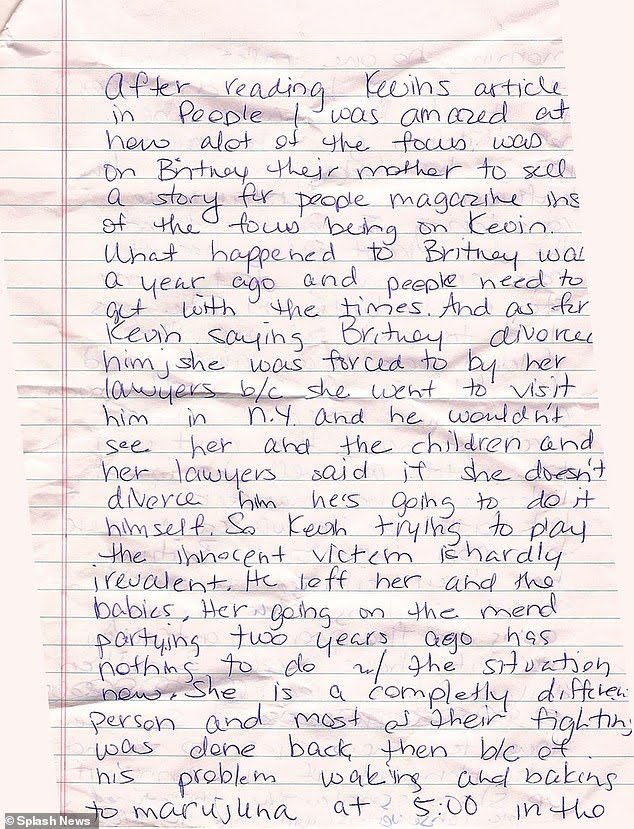 After reading Kevins article
in People I was amazed at
how alot of the focus was
on Britney their mother to sell
a story for people magazine ins
of the focus being on Kevin.
What happened to Britney was
a year ago and people need to
get with the times. And as for
Kevin saying Britney divorced
him, she was forced to by her
lawyers b/c she went to visit
him in N.Y. and he wouldn't
see her and the children and
her lawyers said if she doesn't
divorce him he's going to do it
himself. So Kevin trying to play
the innocent victem is hardly
irevalent. He left her and the
babies. Her going on the mend
partying two years ago has
nothing to do w/ the situation
now. She is a completly differen
person and most of their fighting
was done back then b/c of
his problem waking and baking
to marijuna at 5:00 in the
© Splash News